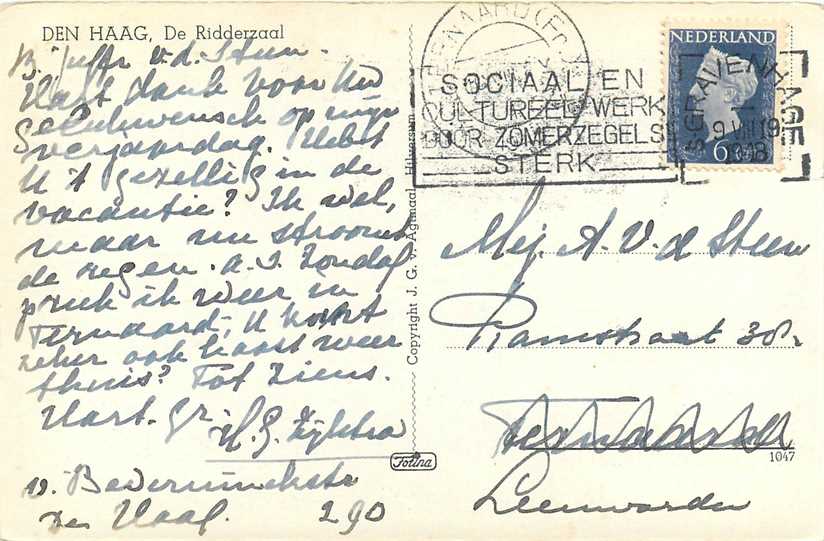 DEN HAAG, De Ridderzaal
B. Juffr. v.d. Steen.
Hart. dank voor Uw
gelukwensch op mijn
verjaardag. Hebt
U 't gezellig in de
vacantie? Ik wel,
maar nu stroomt
de regen. a.s. Zondag
preek ik weer in
Ternaard, U komt
zeker ook haast weer
thuis? Tot Ziens.
Hart. gr.
H. G. Zijlstra
Den Haag. 290
Copyright J. G. v. Agtmaal, Hilversum
Fotina
TERNAARD (FR.)
SOCIAAL EN
CULTUREEL WERK
DOOR ZOMERZEGELS
STERK
'S GRAVENHAGE
9 VIII 19
1948
NEDERLAND
6
Mej. A. v. d. Steen
Ramstraat 38.
Ternaard
1047
Leeuwarden